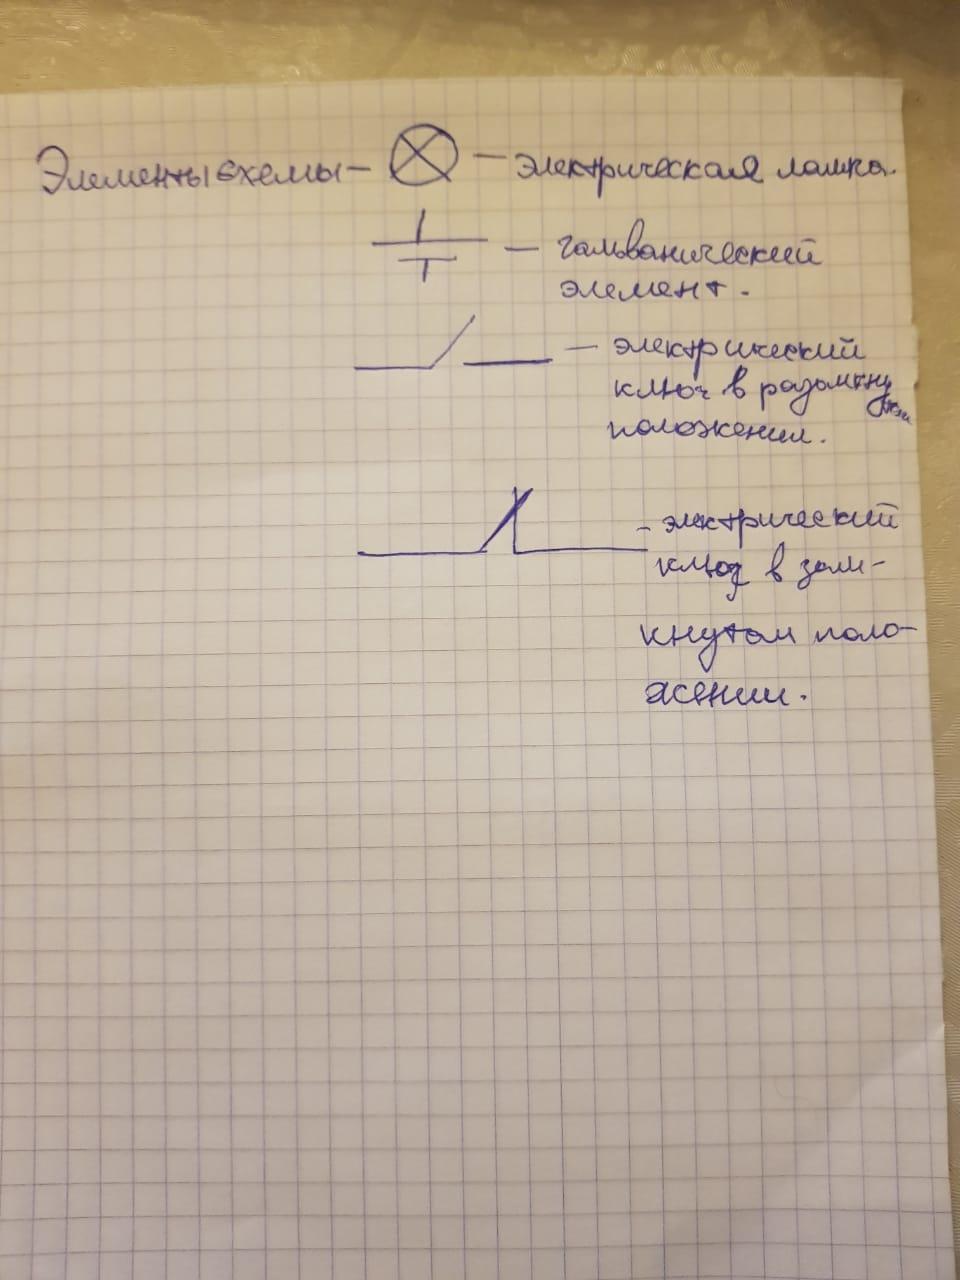 Элементы схемы – – электрическая лампа.
– гальванический
элемент.
– электрический
ключ в разомкнутом
положении.
– электрический
ключ в зам-
кнутом поло-
жении.